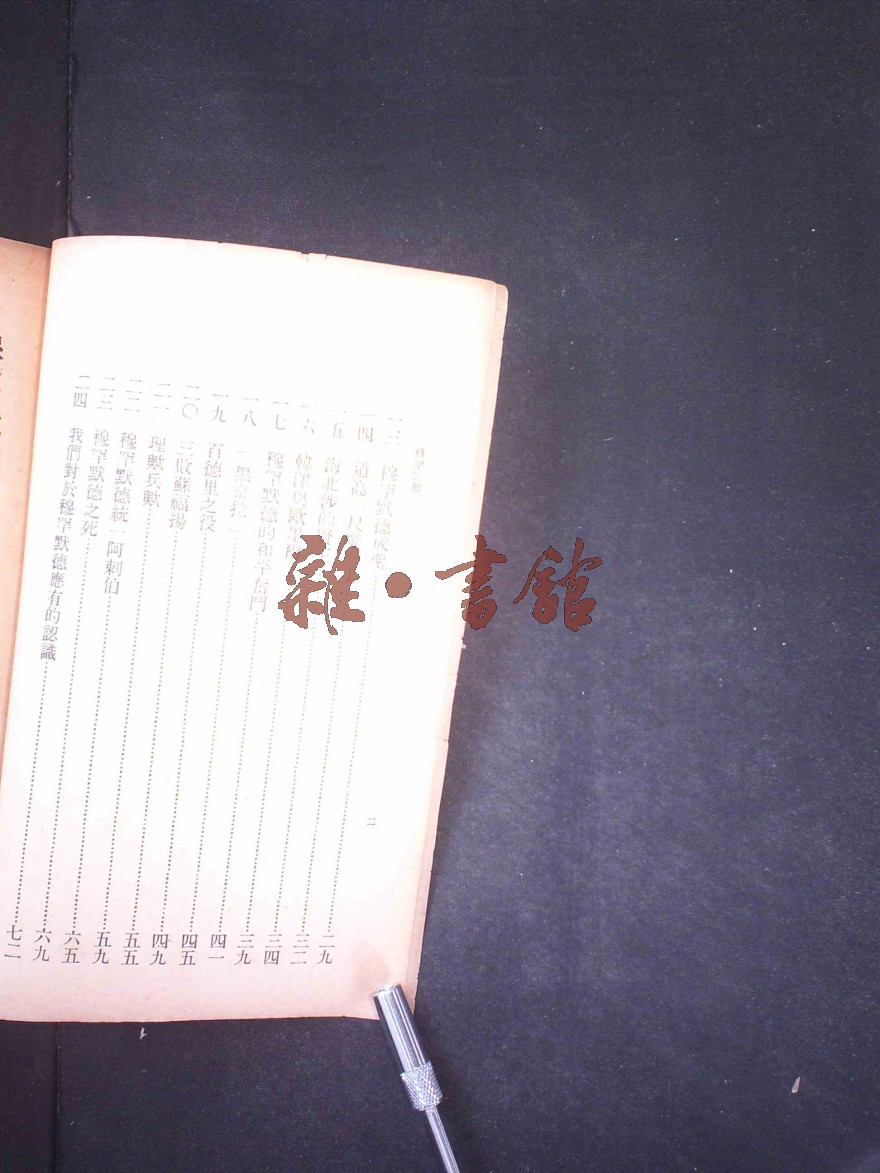 穆罕默德
二
一三 穆罕默德成聖……二九
一四 道高一尺……三二
一五 海北涉的……三四
一六 韓澤與歐……三九
一七 穆罕默德的和平奮鬥……四一
一八 「黑 」……四五
一九 百德里之役……四九
二〇 三敗蘇福揚……五五
二一 理歟兵歟……五九
二二 穆罕默德統一阿剌伯……六五
二三 穆罕默德之死……六九
二四 我們對於穆罕默德應有的認識……七二
雜·書館